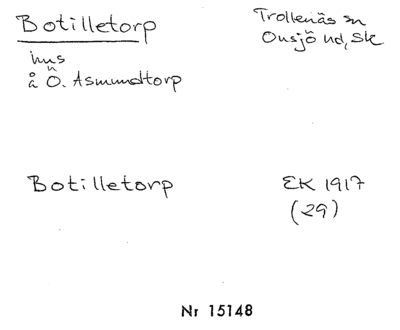 Botilletorp
Trollenäs sn
Onsjö hd, Sk
hus
å Ö. Asmundtorp
Botilletorp
EK 1917
(29)
Nr 15148